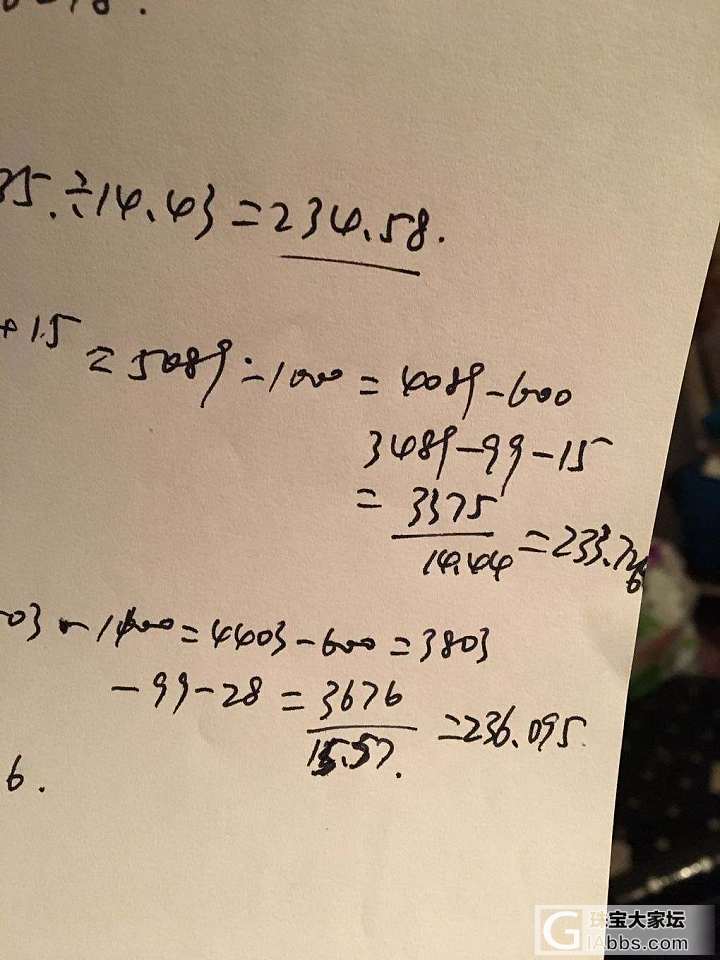 35.÷14.43=234.58.
+15=5089-1000=4089-600
3489-99-15
=3375/14.44=233.726
03-1000=4403-600=3803
-99-28=3676/15.57.=236.095.
6.
珠宝大家坛
GIAbbs.com